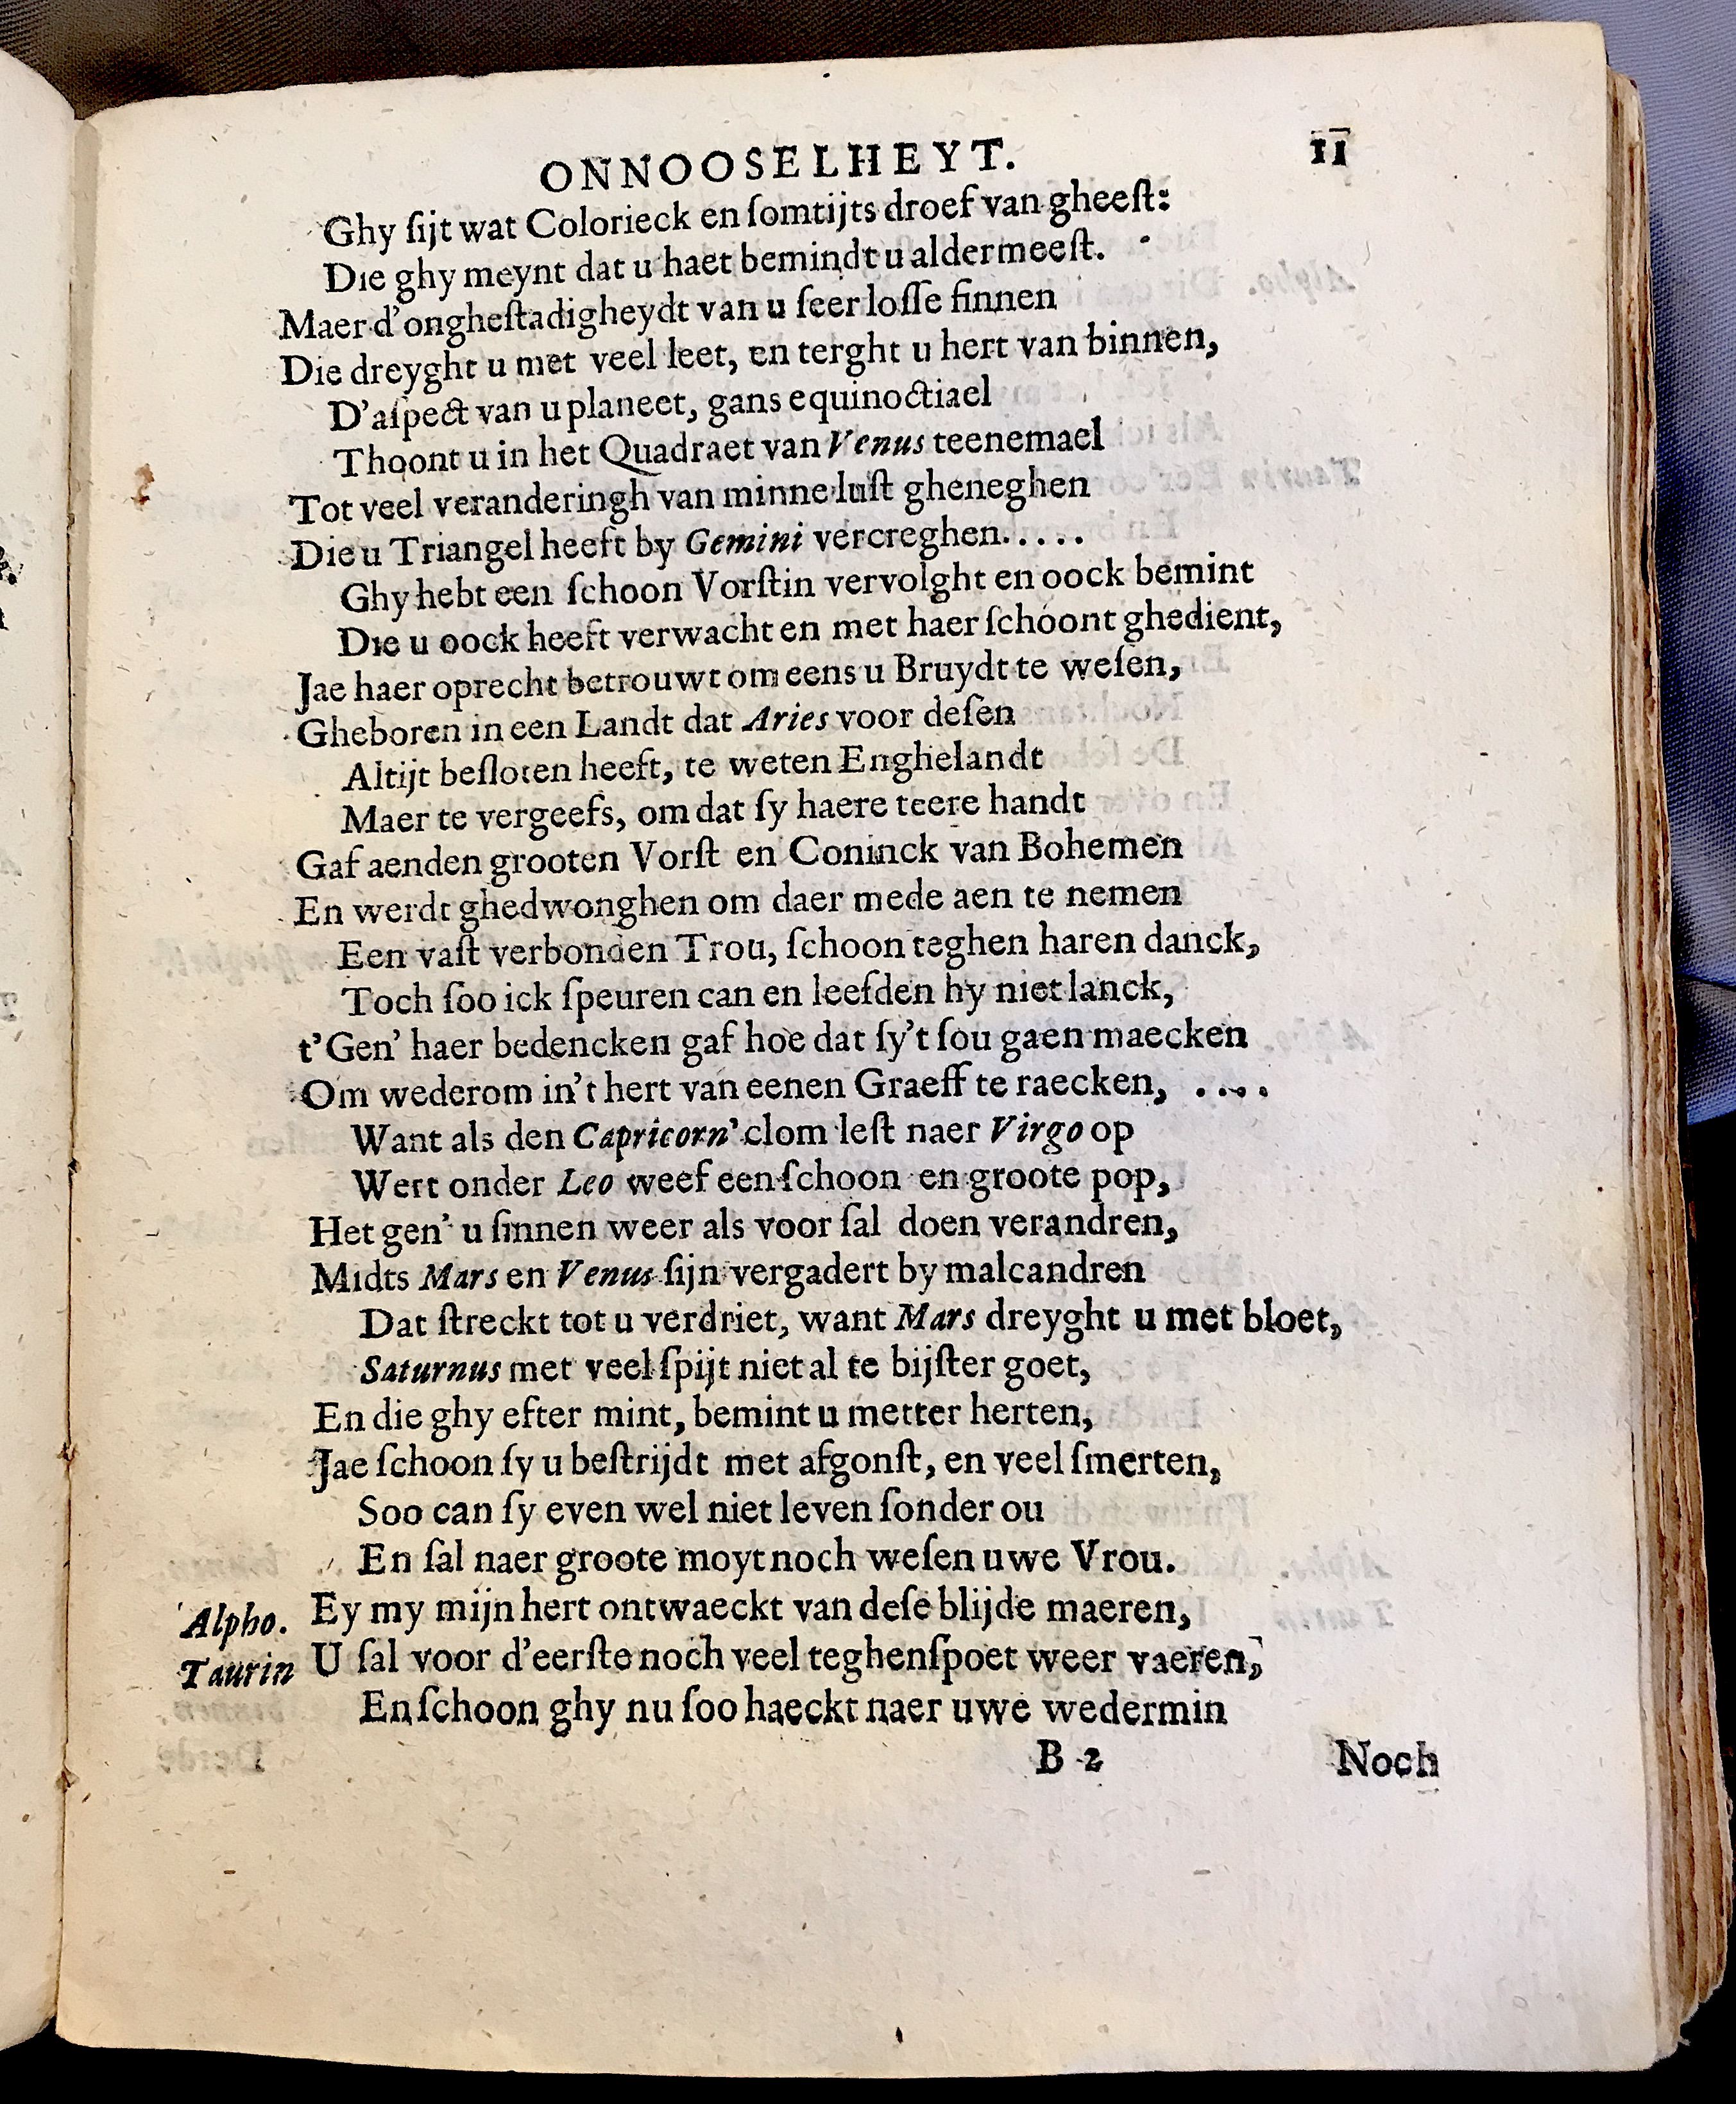 ONNOOSELHEYT. 11
Ghy ſijt wat Colorieck en ſomtijts droef van gheeſt:
Die ghy meynt dat u haet bemindt u aldermeeſt.
Maer d'ongheſtadigheydt van u ſeer loſſe ſinnen
Die dreyght u met veel leet, en terght u hert van binnen,
D'aſpect van u planeet, gans equinoctiael
Thoont u in het Quadraet van Venus teenemael
Tot veel veranderingh van minne luſt gheneghen
Die u Triangel heeft by Gemini vercreghen.....
Ghy hebt een ſchoon Vorſtin vervolght en oock bemint
Die u oock heeft verwacht en met haer ſchoont ghedient,
Jae haer oprecht betrouwt om eens u Bruydt te weſen,
Gheboren in een Landt dat Aries voor deſen
Altijt beſloten heeft, te weten Enghelandt
Maer te vergeefs, om dat ſy haere teere handt
Gaf aenden grooten Vorſt en Coninck van Bohemen
En werdt ghedwonghen om daer mede aen te nemen
Een vaſt verbonden Trou, ſchoon teghen haren danck,
Toch ſoo ick ſpeuren can en leefden hy niet lanck,
t'Gen' haer bedencken gaf hoe dat ſy't ſou gaen maecken
Om wederom in't hert van eenen Graeff te raecken, ....
Want als den Capricorn' clom leſt naer Virgo op
Wert onder Leo weef een ſchoon en groote pop,
Het gen' u ſinnen weer als voor ſal doen verandren,
Midts Mars en Venus ſijn vergadert by malcandren
Dat ſtreckt tot u verdriet, want Mars dreyght u met bloet,
Saturnus met veel ſpijt niet al te bijſter goet,
En die ghy efter mint, bemint u metter herten,
Jae ſchoon ſy u beſtrijdt met afgonſt, en veel ſmerten,
Soo can ſy even wel niet leven ſonder ou
En ſal naer groote moyt noch weſen uwe Vrou.
Alpho. Ey my mijn hert ontwaeckt van deſe blijde maeren,
Taurin U ſal voor d'eerſte noch veel teghenſpoet weer vaeren,
En ſchoon ghy nu ſoo haeckt naer uwe wedermin
B 2 Noch